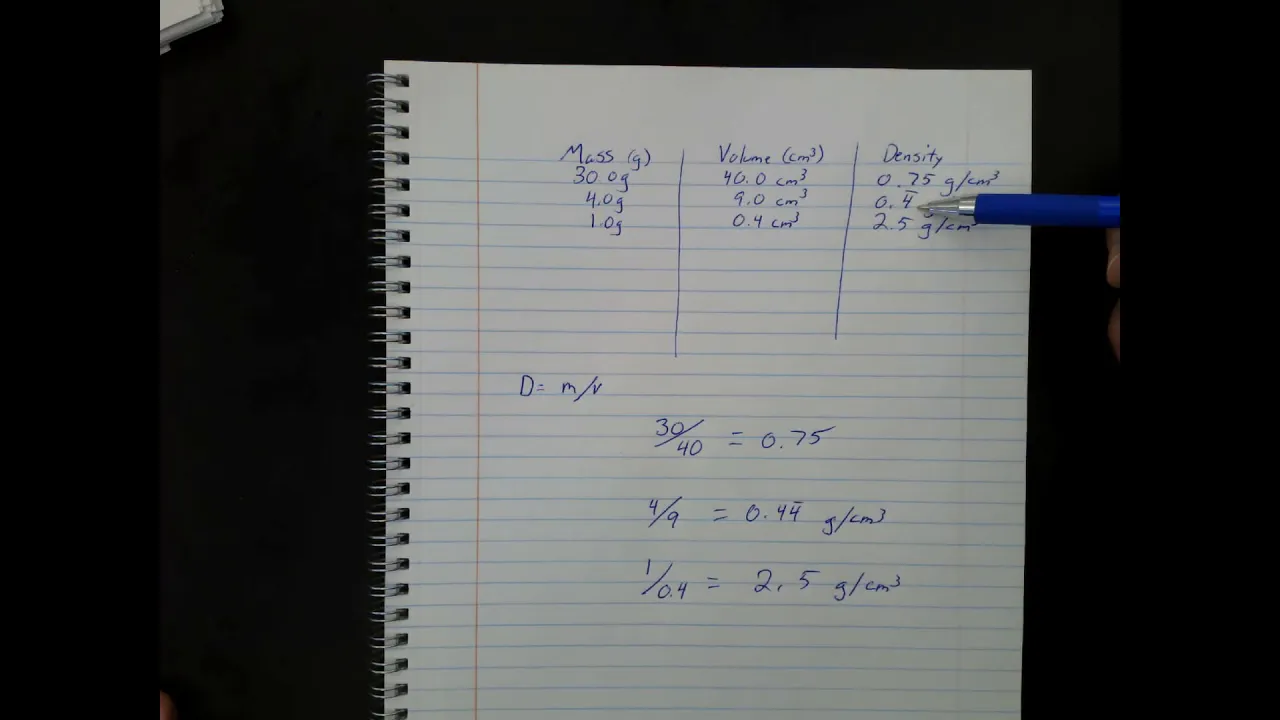 Mass (g) Volume (cm³) Density
30.0g 40.0 cm³ 0.75 g/cm³
4.0g 9.0 cm³ 0.4̅
1.0g 0.4 cm³ 2.5 g/cm³
D= m/v
30/40 = 0.75
4/9 = 0.44̅ g/cm³
1/0.4 = 2.5 g/cm³